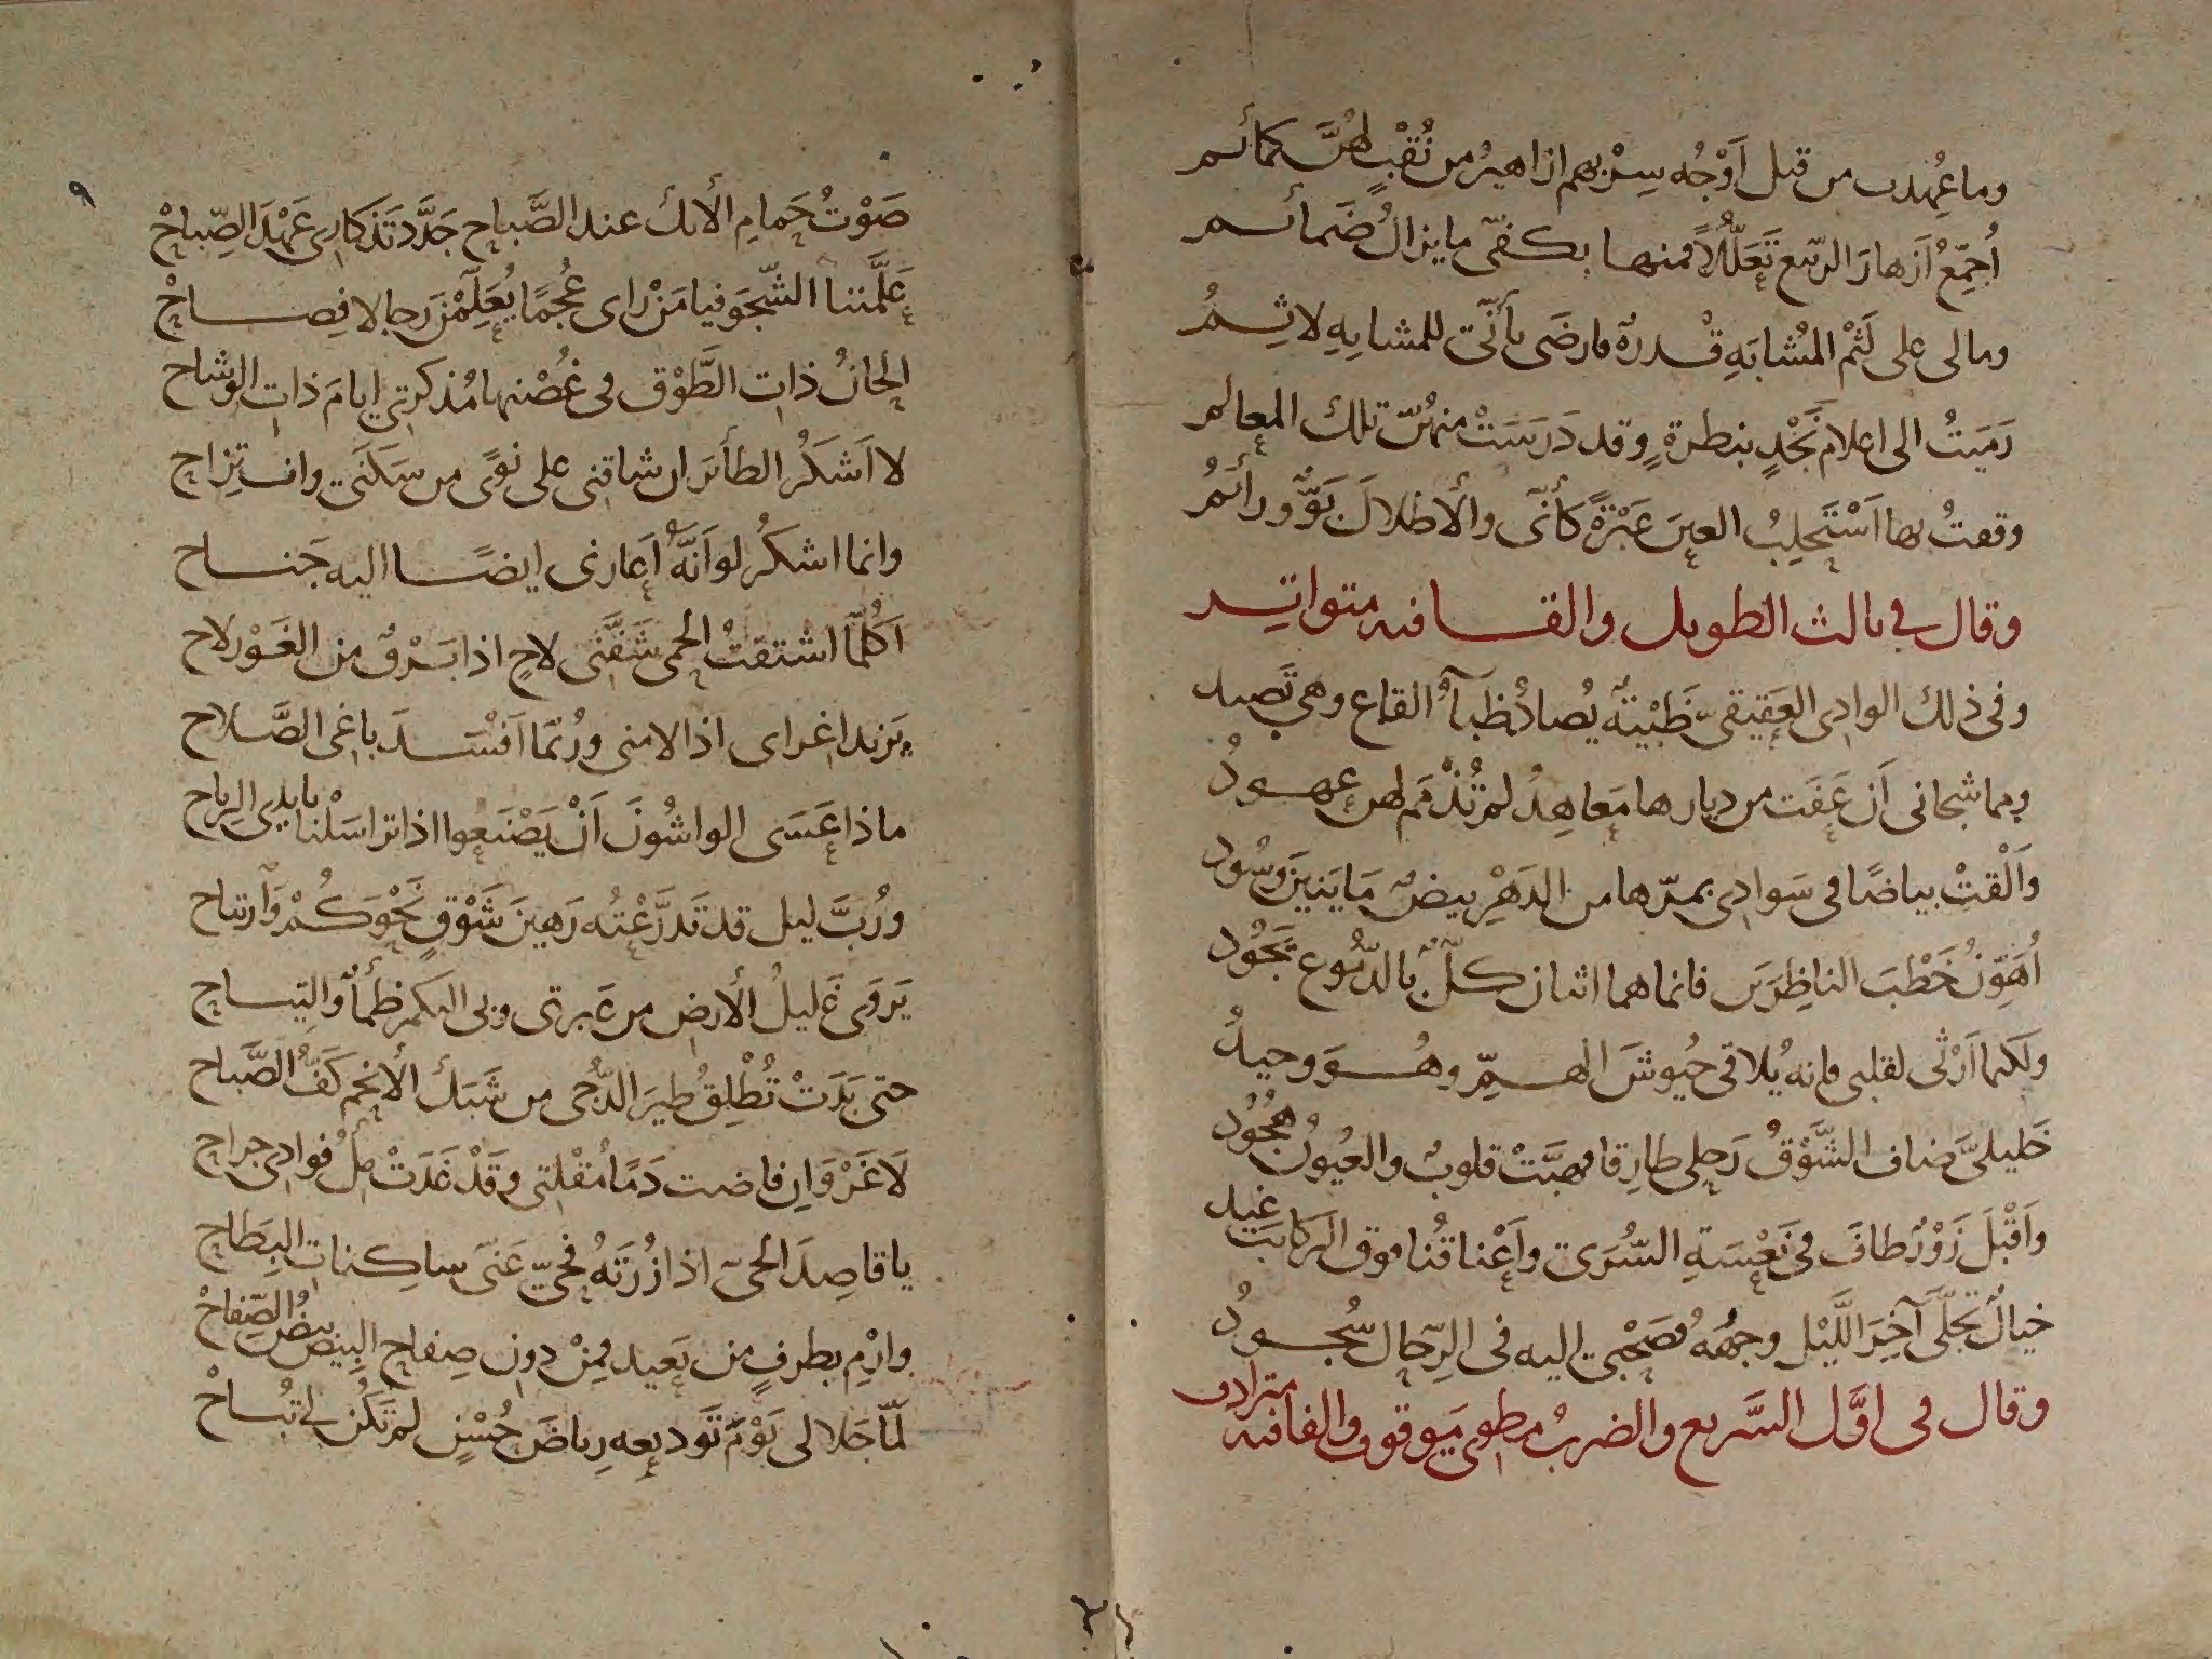 وما عُهِدت من قبل اَوْجُه سِرْبهم ازاهيرُ من نُقْبٍ لهُنَّ كمائم
اُجمِّعُ اَزهارَ الربيع تَعَلُّلًا فمنها بكفىّ ما يزالُ ضَمائم
ومالى على لَثْم المُشابَهِ قدرةٌ فارضَى بأنّى للمشابِهِ لاثِمُ
رَمَيتُ الى اعلام نَجْدٍ بنظرةٍ وقد دَرَسَتْ منهُنّ تلك المعالم
وقفتُ بها اَسْتَحلِبُ العينَ عَبْرَةً كأنّى والأطلالَ بَوٌّ ورائمُ
وقال في ثالث الطويل والقافيه متواتر
وفى ذلك الوادى العَقيقىّ ظَبْيَةٌ يُصادُ ظِبآءُ القاع وهى تَصيد
ومما شجانى اَن عَفَت من ديارها مَعاهِدُ لم تُذْمَم لهن عهودُ
وَاَلْقتْ بياضًا فى سَوادى بمرّها من الدَهْرِ بيضٌ مَا يَنِينَ وَسُود
اُهَوِّنُ خَطْبَ الناظِرَين فانما هما اثنان كلٌّ بالدّموع تَجُود
ولكنما اَرْثى لقلبى فانه يُلاقى جُيوشَ الهمِّ وهُوَ وحيدُ
خَليلىَّ ضاف الشَّوْقُ رَحلى طارِقا فهبَّتْ قلوبٌ والعُيونُ هُجُودُ
واَقْبَلَ زَوْرٌ طافَ فى نَعْسَةِ السُّرَى واَعْناقُنا فوق الركائب غيد
خيالٌ تجلَّى آخِرَ اللَّيْل وجهُهُ فصَحْبى اليه فى الرِّحال سُجودُ
وقال فى اوَّل السَّريع والضربُ مطوى موقوف والقافيه مترادف
٩
صَوْتُ حَمامِ الأَيك عند الصَّباح جَدَّدَ تَذكارى عَهْدَ الصِّباحْ
عَلَّمننا الشّجَو فيا مَنْ راى عُجْمًا يُعَلِّمْنَ رجالا فِصاحْ
اَلحانُ ذاتِ الطَّوْق فى غُصْنها مُذكرتى ايامَ ذاتِ الوِشاح
لا اَشكُر الطائرَ ان شاقنى على نوًى من سَكَنى وانتزاح
وانما اشكُر لو اَنَّهُ اَعارنى ايضًا اليه جَناح
اَكُلَّما اشتقتُ الحِمى شَفَّنى لاحٍ اذا بَرْقٌ من الغَوْر لاح
يَزيد اغراى اذا لامنى ورُبّما اَفْسَدَ باغى الصَّلاح
ماذا عَسَى الواشُونَ اَنْ يَصْنَعوا اذا تراسَلْنا بايدى الرياح
ورُبَّ ليل قد تَدرَّعْتُه رَهينَ شَوْقٍ نَحْوَكُمْ وَارتياح
يَروَى غَليلُ الأرض من عَبرتى وبى اليكم ظمأٌ وَالتياح
حتى بَدَتْ تُطْلِقُ طيرَ الدُّجى من شَبَك الأنجُم كَفُّ الصَّباح
لَا غَرْوَ اِن فاضت دَمًا مُقْلتى وقَدْ غَدَتْ مِلْءُ فوادى جراح
يا قاصِدَ الحىّ اذا زُرْتَهُ فحَىِّ عَنّى ساكِناتِ البِطاح
وارْمِ بطرفٍ من بَعيد فمِنْ دون صِفاح البِيض بيضُ الصِّفاحْ
لمّا جَلا لى يَوْمَ تَوديعه رِياضَ حُسْنٍ لم تَكُن لى تُباحْ